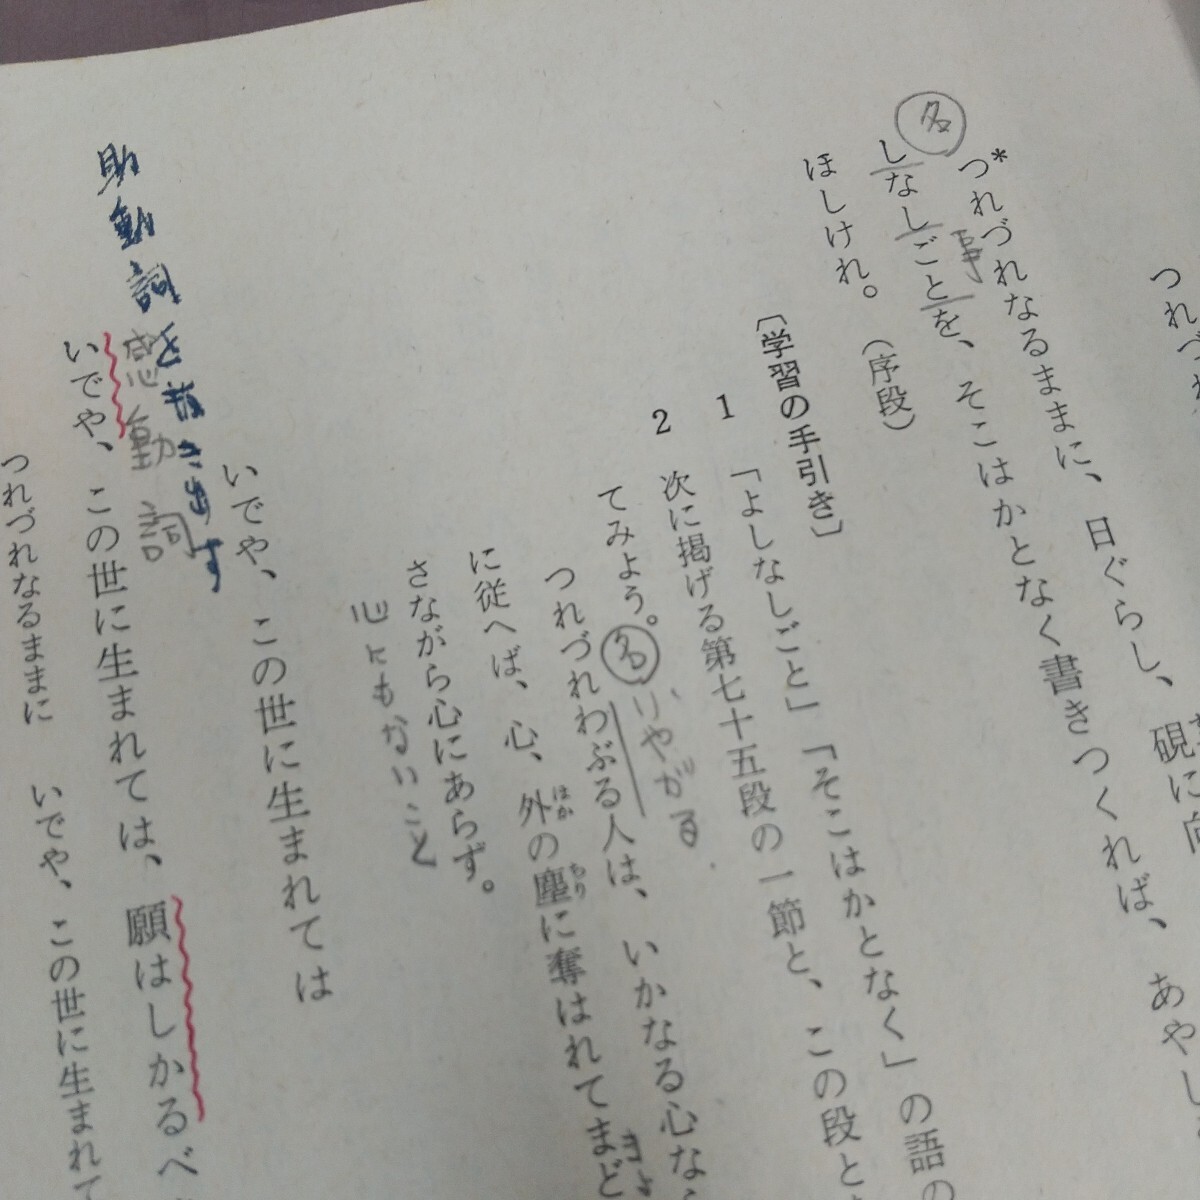 つれづれ
*つれづれなるままに、日ぐらし、硯に向
名
しなしごとを、そこはかとなく書きつくれば、あやし
事
ほしけれ。(序段)
〔学習の手引き〕
1 「よしなしごと」「そこはかとなく」の語の
2 次に掲げる第七十五段の一節と、この段と
てみよう。
名
いやがる
つれづれわぶる人は、いかなる心なら
に従へば、心、外の塵に奪はれてまど
ほか
ちり
さながら心にあらず。
心にもないこと
いでや、この世に生まれては
助動詞を抜き出す
感動詞
いでや、この世に生まれては、願はしかるべ
つれづれなるままに いでや、この世に生まれて